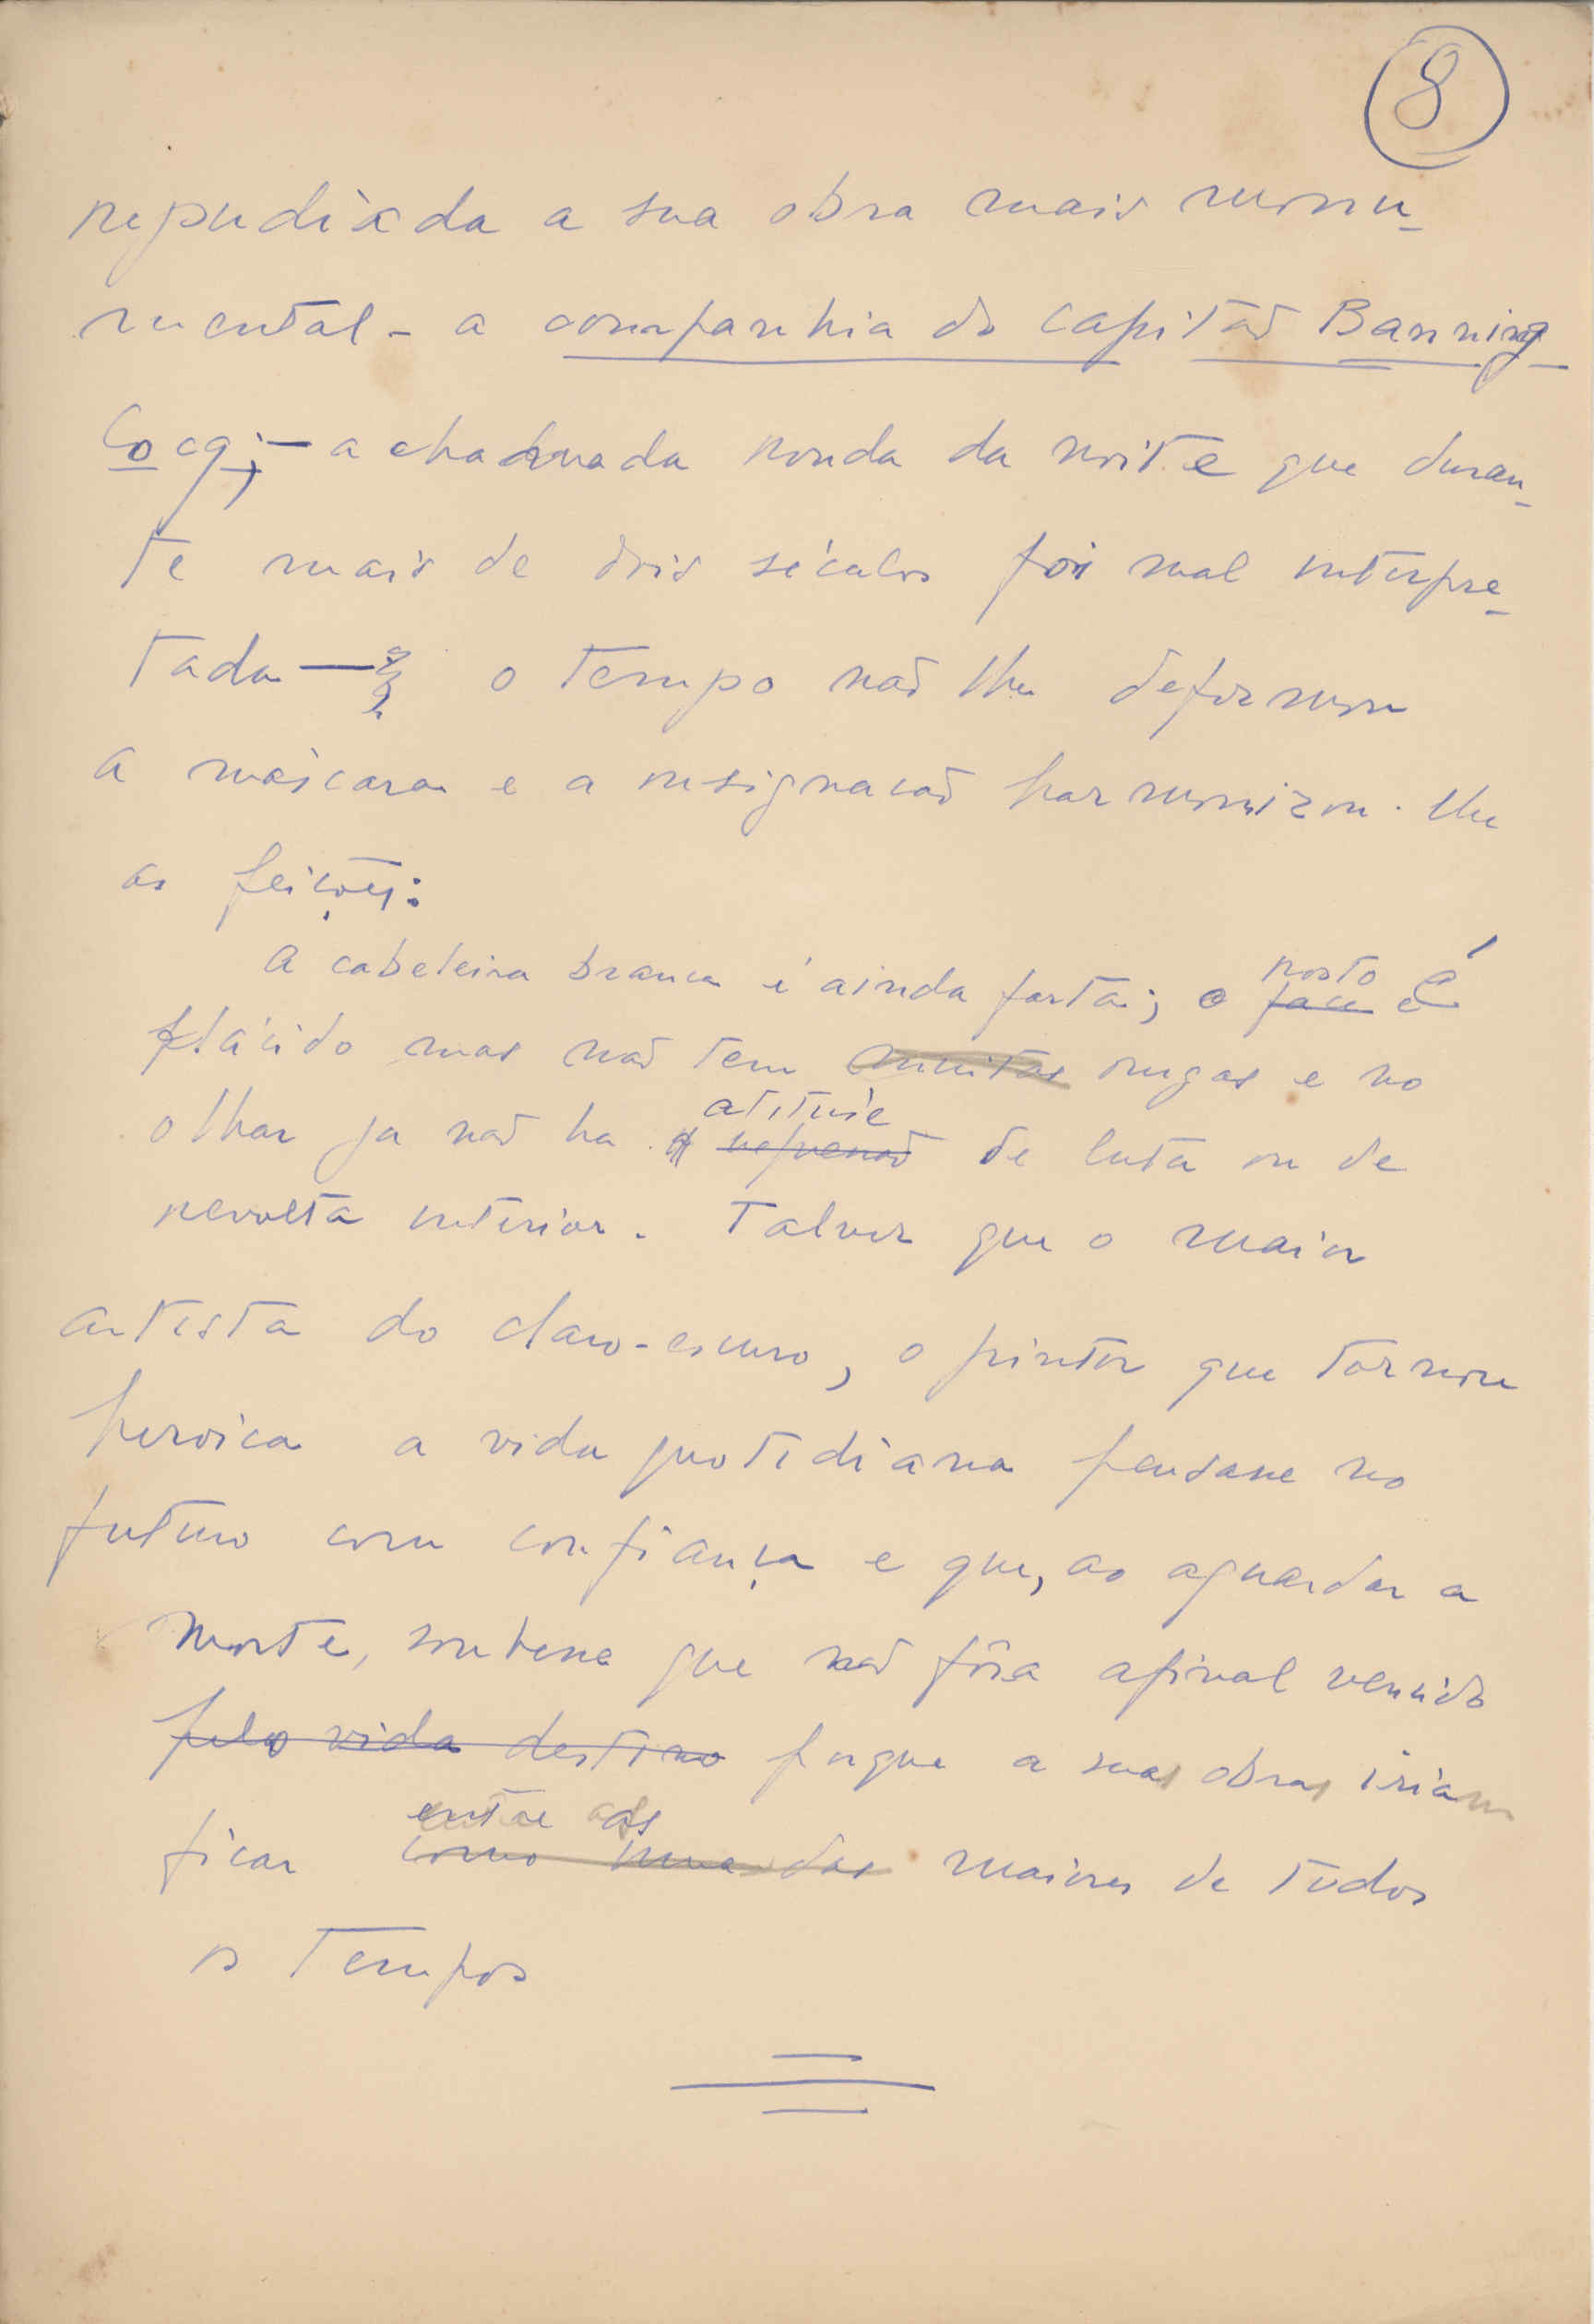 8
repudiada a sua obra mais monu-
mental - a companhia do capitão Banning
Cocq; - a chamada ronda da noite que duran-
te mais de dois séculos foi mal interpre-
tada — o tempo não lhe deformou
a máscara e a resignacão harmonizou-lhe
as feições:
A cabeleira branca é ainda farta; o rosto face é
plácido mas não tem muitas rugas e no
olhar ja não ha atitude de luta ou de
revolta interior. Talvez que o maior
artista do claro-escuro, o pintor que tornou
heroica a vida quotidiana pensasse no
futuro com confiança e que, ao aguardar a
morte, soubesse que não fôra afinal vencido
pelo vida destino porque a suas obras iriam
ficar entre as como uma das maiores de todos
os tempos